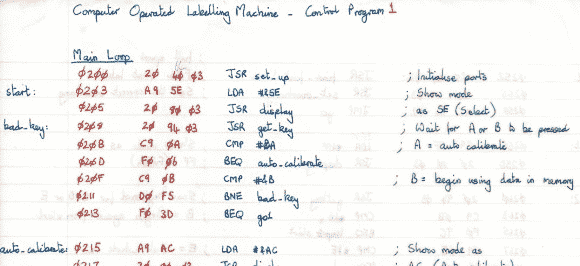 Computer Operated Labelling Machine - Control Program 1
Main Loop
0200 20 40 03 JSR set_up ; Initialise ports
start: 0203 A9 5E LDA #&5E ; Show mode
0205 20 80 03 JSR display ; as SE (Select)
bad_key: 0208 20 94 03 JSR get_key ; Wait for A or B to be pressed
020B C9 0A CMP #&A ; A = auto calibrate
020D F0 06 BEQ auto_calibrate
020F C9 0B CMP #&B ; B = begin using data in memory
0211 D0 F5 BNE bad_key
0213 F0 3D BEQ
auto_calibrate: 0215 A9 AC LDA #&AC ; Show mode as
0217